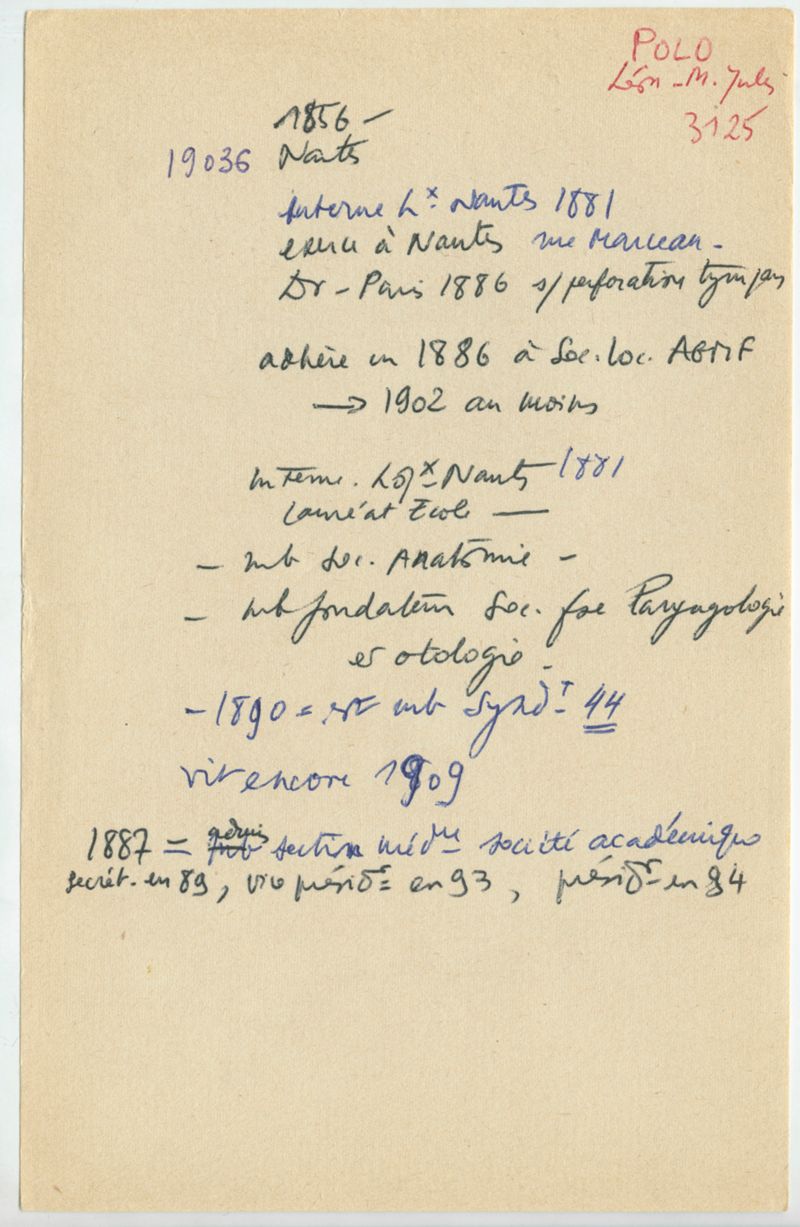 POLO
Léon-M. Jules
3125
1856 -
19036 Nantes
Interne hx Nantes 1881
exerce à Nantes rue Marceau -
Dr - Paris 1886 s/perforation tympan
adhère en 1886 à Soc. loc. AGMF
→ 1902 au moins
Interne. Hôpx Nantes 1881
lauréat École —
- mb Soc. Anatomie -
- mb fondateur Soc. fse laryngologie
et otologie -
- 1890 = est mb Syndt 44
vit encore 1909
1887 = admis section médle société académique
secrét. en 89, vice présidt = en 93, présidt en 94